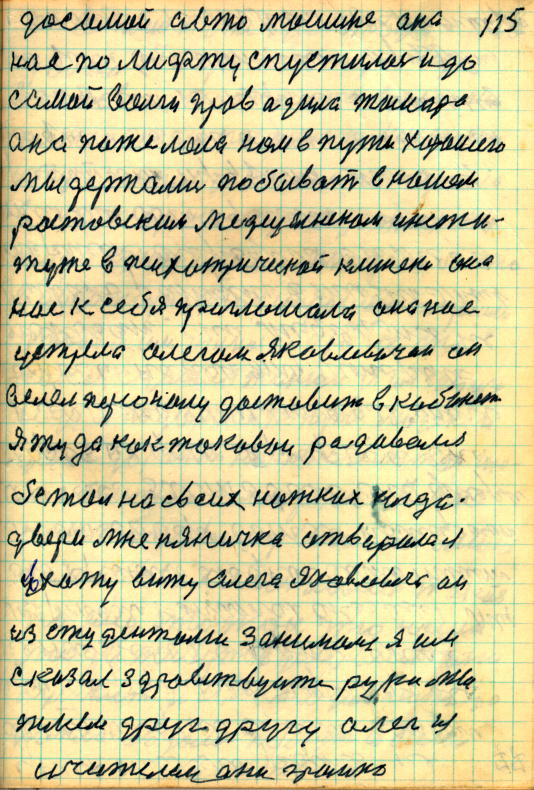 досамой авто мошине ана 115
нас по лифту спустилас и до
самой волги правадила тамара
ана пожелала нам в пути харошего
мы держали побыват в нашем
ростовским медецынском инсти-
туте в психотрической клинеке она
нас к себя приглошала она нас
устрела олегом яковлевичам он
велел персоналу доставит в кабинет
я туда как таковои радовался
бежал на своих ножках когда
двери мне няничка отварила я
вхожу вижу олега яковлевича он
из студентами занималс я им
сказал здравствуите руки мы
жмем друг другу олег и
учителем ана громко